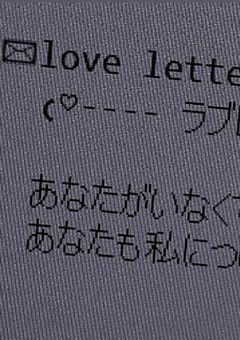 ✉love lette
(♡---- ラブ
あなたがいなく
あなたも私につ